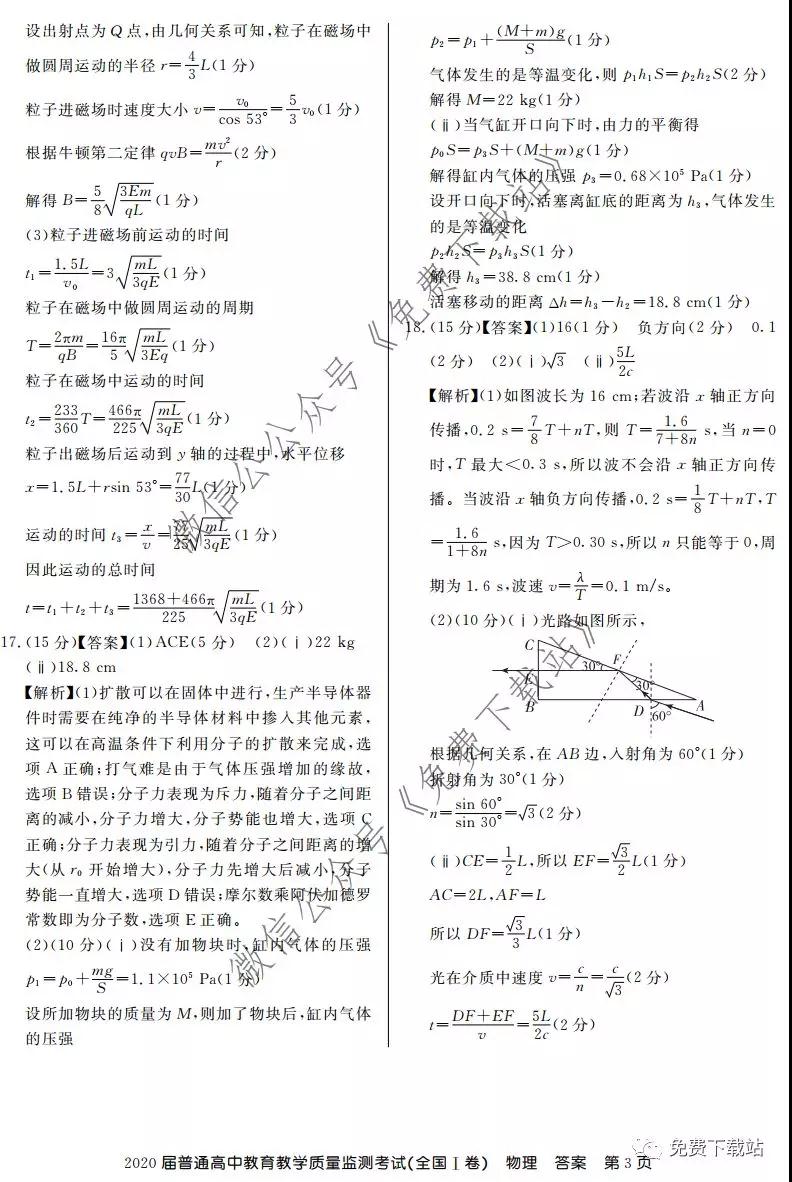 设出射点为Q点,由几何关系可知,粒子在磁场中
做圆周运动的半径 r=4/3L(1分)
粒子进磁场时速度大小 v=v₀/cos 53°=5/3v₀(1分)
根据牛顿第二定律 qvB=mv²/r(2分)
解得 B=5/8√(3Em/qL)(1分)
(3)粒子进磁场前运动的时间
t₁=1.5L/v₀=3√(mL/3qE)(1分)
粒子在磁场中做圆周运动的周期
T=2πm/qB=16π/5√(mL/3Eq)(1分)
粒子在磁场中运动的时间
t₂=233/360T=466π/225√(mL/3qE)(1分)
粒子出磁场后运动到 y 轴的过程中,水平位移
x=1.5L+rsin 53°=77/30L(1分)
运动的时间 t₃=x/v=/25√(mL/3qE)(1分)
因此运动的总时间
t=t₁+t₂+t₃=(1368+466π)/225√(mL/3qE)(1分)
17.(15分)【答案】(1)ACE(5分) (2)(ⅰ)22 kg
(ⅱ)18.8 cm
【解析】(1)扩散可以在固体中进行,生产半导体器
件时需要在纯净的半导体材料中掺入其他元素,
这可以在高温条件下利用分子的扩散来完成,选
项A正确;打气难是由于气体压强增加的缘故,
选项B错误;分子力表现为斥力,随着分子之间距
离的减小,分子力增大,分子势能也增大,选项C
正确;分子力表现为引力,随着分子之间距离的增
大(从 r₀ 开始增大),分子力先增大后减小,分子
势能一直增大,选项D错误;摩尔数乘阿伏加德罗
常数即为分子数,选项E正确。
(2)(10分)(ⅰ)没有加物块时,缸内气体的压强
p₁=p₀+mg/S=1.1×10⁵ Pa(1分)
设所加物块的质量为M,则加了物块后,缸内气体
的压强
p₂=p₁+(M+m)g/S(1分)
气体发生的是等温变化,则 p₁h₁S=p₂h₂S(2分)
解得 M=22 kg(1分)
(ⅱ)当气缸开口向下时,由力的平衡得
p₀S=p₃S+(M+m)g(1分)
解得缸内气体的压强 p₃=0.68×10⁵ Pa(1分)
设开口向下时,活塞离缸底的距离为 h₃,气体发生
的是等温变化
p₂h₂S=p₃h₃S(1分)
解得 h₃=38.8 cm(1分)
活塞移动的距离 △h=h₃-h₂=18.8 cm(1分)
18.(15分)【答案】(1)16(1分) 负方向(2分) 0.1
(2分) (2)(ⅰ)√3 (ⅱ)5L/2c
【解析】(1)如图波长为 16 cm;若波沿 x 轴正方向
传播,0.2 s=7/8T+nT,则 T=1.6/(7+8n) s,当 n=0
时,T 最大<0.3 s,所以波不会沿 x 轴正方向传
播。当波沿 x 轴负方向传播,0.2 s=1/8T+nT,T
=1.6/(1+8n) s,因为 T>0.30 s,所以 n 只能等于0,周
期为 1.6 s,波速 v=λ/T=0.1 m/s。
(2)(10分)(ⅰ)光路如图所示,
C
30° F
E
30°
B D A
60°
根据几何关系,在AB边,入射角为60°(1分)
折射角为30°(1分)
n=sin 60°/sin 30°=√3(2分)
(ⅱ)CE=1/2L,所以 EF=√3/2L(1分)
AC=2L,AF=L
所以 DF=√3/3L(1分)
光在介质中速度 v=c/n=c/√3(2分)
t=(DF+EF)/v=5L/2c(2分)
微信公众号《免费下载站》
微信公众号《免费下载站》
免费下载站
2020届普通高中教育教学质量监测考试(全国Ⅰ卷) 物理 答案 第3页